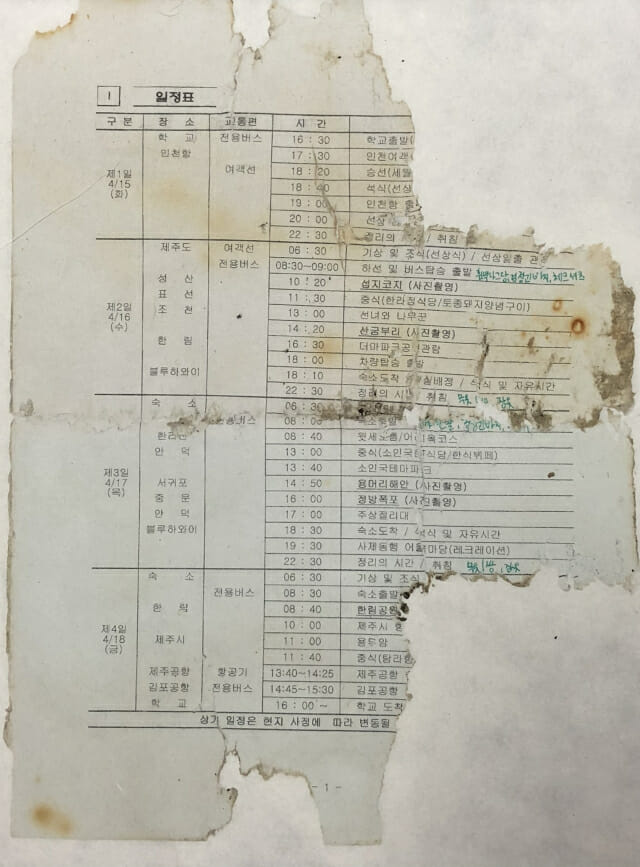 1 일정표
구 분 장 소 교통편 시 간
학 교 전용버스 16 : 30 학교출발(
인천항 17 : 30 인천여객
제1일 여객선 18 : 20 승선(세월
4/15 18 : 40 석식(선상
(화) 19 : 00 인천항 출
20 : 00 선상
22 : 30 정리의 / 취침
제주도 여객선 06 : 30 기상 및 조식(선상식) / 선상일출 관
전용버스 08:30~09:00 하선 및 버스탑승 출발
성 산 10 : 20 섭지코지 (사진촬영)
제2일 표 선 11 : 30 중식(한라정식당/토종돼지양념구이)
4/16 조 천 13 : 00 선녀와 나무꾼
(수) 14 : 20 산굼부리 (사진촬영)
한 림 16 : 30 더마파크공연관람
18 : 00 차량탑승 출발
블루하와이 18 : 10 숙소도착 / 실배정 / 석식 및 자유시간
22 : 30 정리의 시간 / 취침
숙 소 06 : 30
전용버스 숙소출발
한라산 08 : 40 윗세오름/어리목코스
제3일 안 덕 13 : 00 중식(소인국 식당/한식뷔페)
4/17 13 : 40 소인국테마파크
(목) 서귀포 14 : 50 용머리해안 (사진촬영)
중 문 16 : 00 정방폭포 (사진촬영)
안 덕 17 : 00 주상절리대
블루하와이 18 : 30 숙소도착 / 석식 및 자유시간
19 : 30 사제동행 어울마당(레크레이션)
22 : 30 정리의 시간 / 취침
숙 소 06 : 30 기상 및 조식
전용버스 08 : 30 숙소출발
한 림 08 : 40 한림공원
제4일 10 : 00 제주시 향
4/18 제주시 11 : 00 용두암
(금) 11 : 40 중식(탐라
제주공항 항공기 13:40~14:25 제주공항
김포공항 전용버스 14:45~15:30 김포공항
학 교 16 : 00 ~ 학교 도착
상기 일정은 현지 사정에 따라 변동될
- 1 -